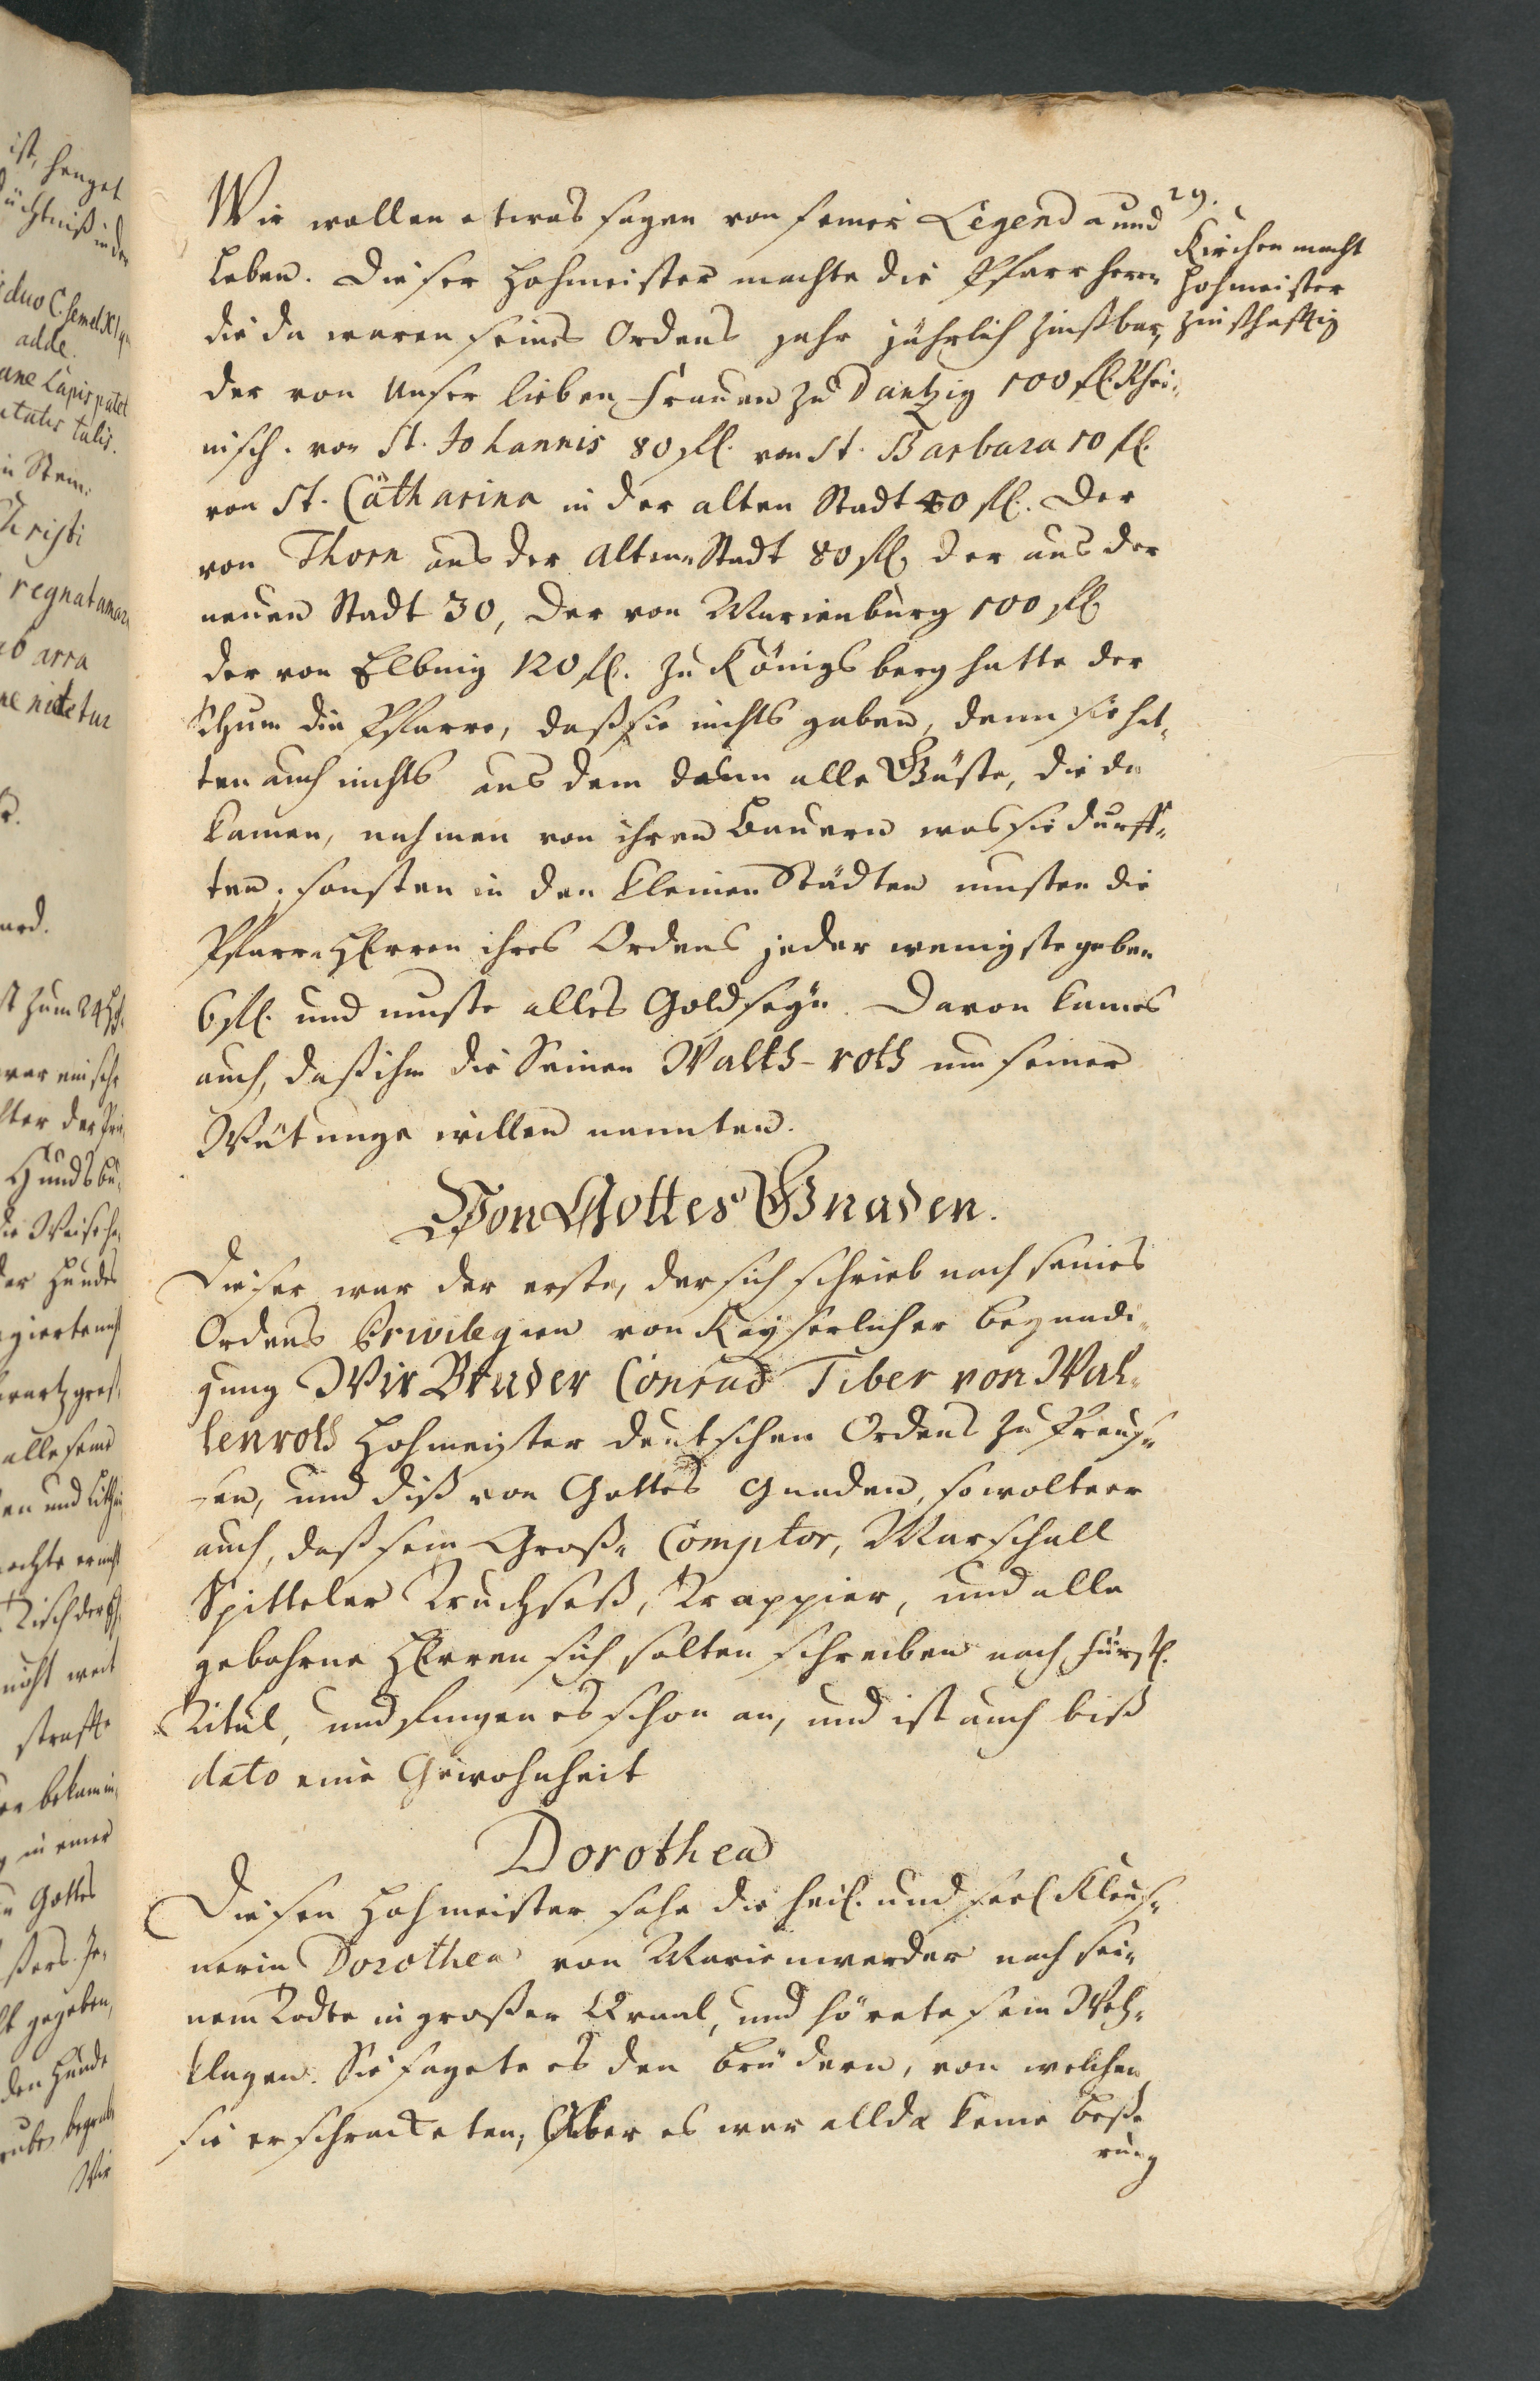 29.
Wir wollen etwas sagen von seiner Legenda und
Leben. Dieser Hohmeister machte die Pfarrherrn
die da waren seines Ordens gahr jährlich zinßbar,
der von Unser lieben Frauen zu Dantzig 100 fl. Rhei-
nisch. von St. Johannis 80 fl. von St. Barbara 10 fl.
von St. Catharina in der alten Stadt 40 fl. Der
von Thorn aus der Alten Stadt 80 fl. der aus der
neuen Stadt 30, der von Marienburg 100 fl.
der von Elbing 120 fl. zu Königsberg hatte der
Thum die Pfarre, daß sie nichts gaben, denn sie hat-
ten auch nichts aus dem denn alle Gäste, die da
kamen, nahmen von ihren Bauern was sie durff-
ten, sonsten in den kleinen Städten musten die
Pfarr-Herren ihres Ordens jeder wenigste geben
6 fl. und muste alles Gold seyn. Davon kam es
auch, daß ihn die Seinen Walth-roth um seiner
Wütunge willen nannten.
Kirchen macht
Hohmeister
zinßhafftig
Von Gottes Gnaden.
Dieser war der erste, der sich schrieb nach seines
Ordens Privilegien von Kayserlicher begnadi-
gung Wir Bruder Conrad Tiber von Wal-
lenroth Hohmeister deutschen Ordens zu Preus-
sen, und diß von Gottes gnaden, so wolte er
auch, daß sein Groß- Comptor, Marschall
Spitteler Truchseß, Trappier, und alle
gebohrne Herren sich solten schreiben nach fürstl.
Titul, und fingen es schon an, und ist auch biß
dato eine Gewohnheit
Dorothea
Diesen Hohmeister sahe die heil. und seel Kleus-
nerin Dorothea von Marienwerder nach sei-
nem Todte in großer Qvaal, und hörete sein Weh-
klagen. Sie sagete es den brüdern, von welchen
sie erschracketen, Aber es war allda keine beße-
rung